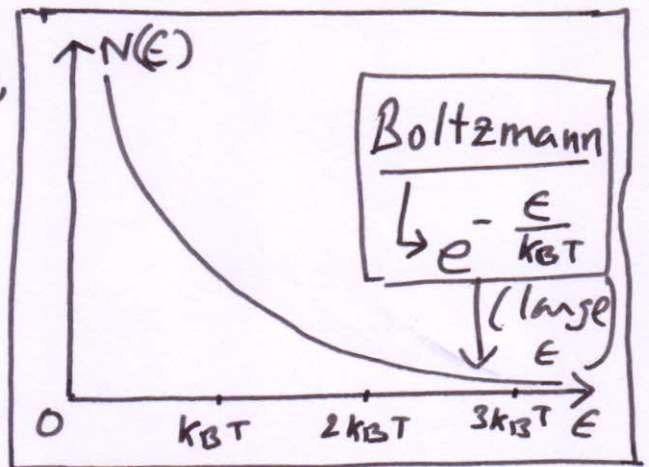 N(ϵ)
Boltzmann
↳ e^- ϵ/k_BT
(large
ϵ)
0 k_BT 2k_BT 3k_BT ϵ